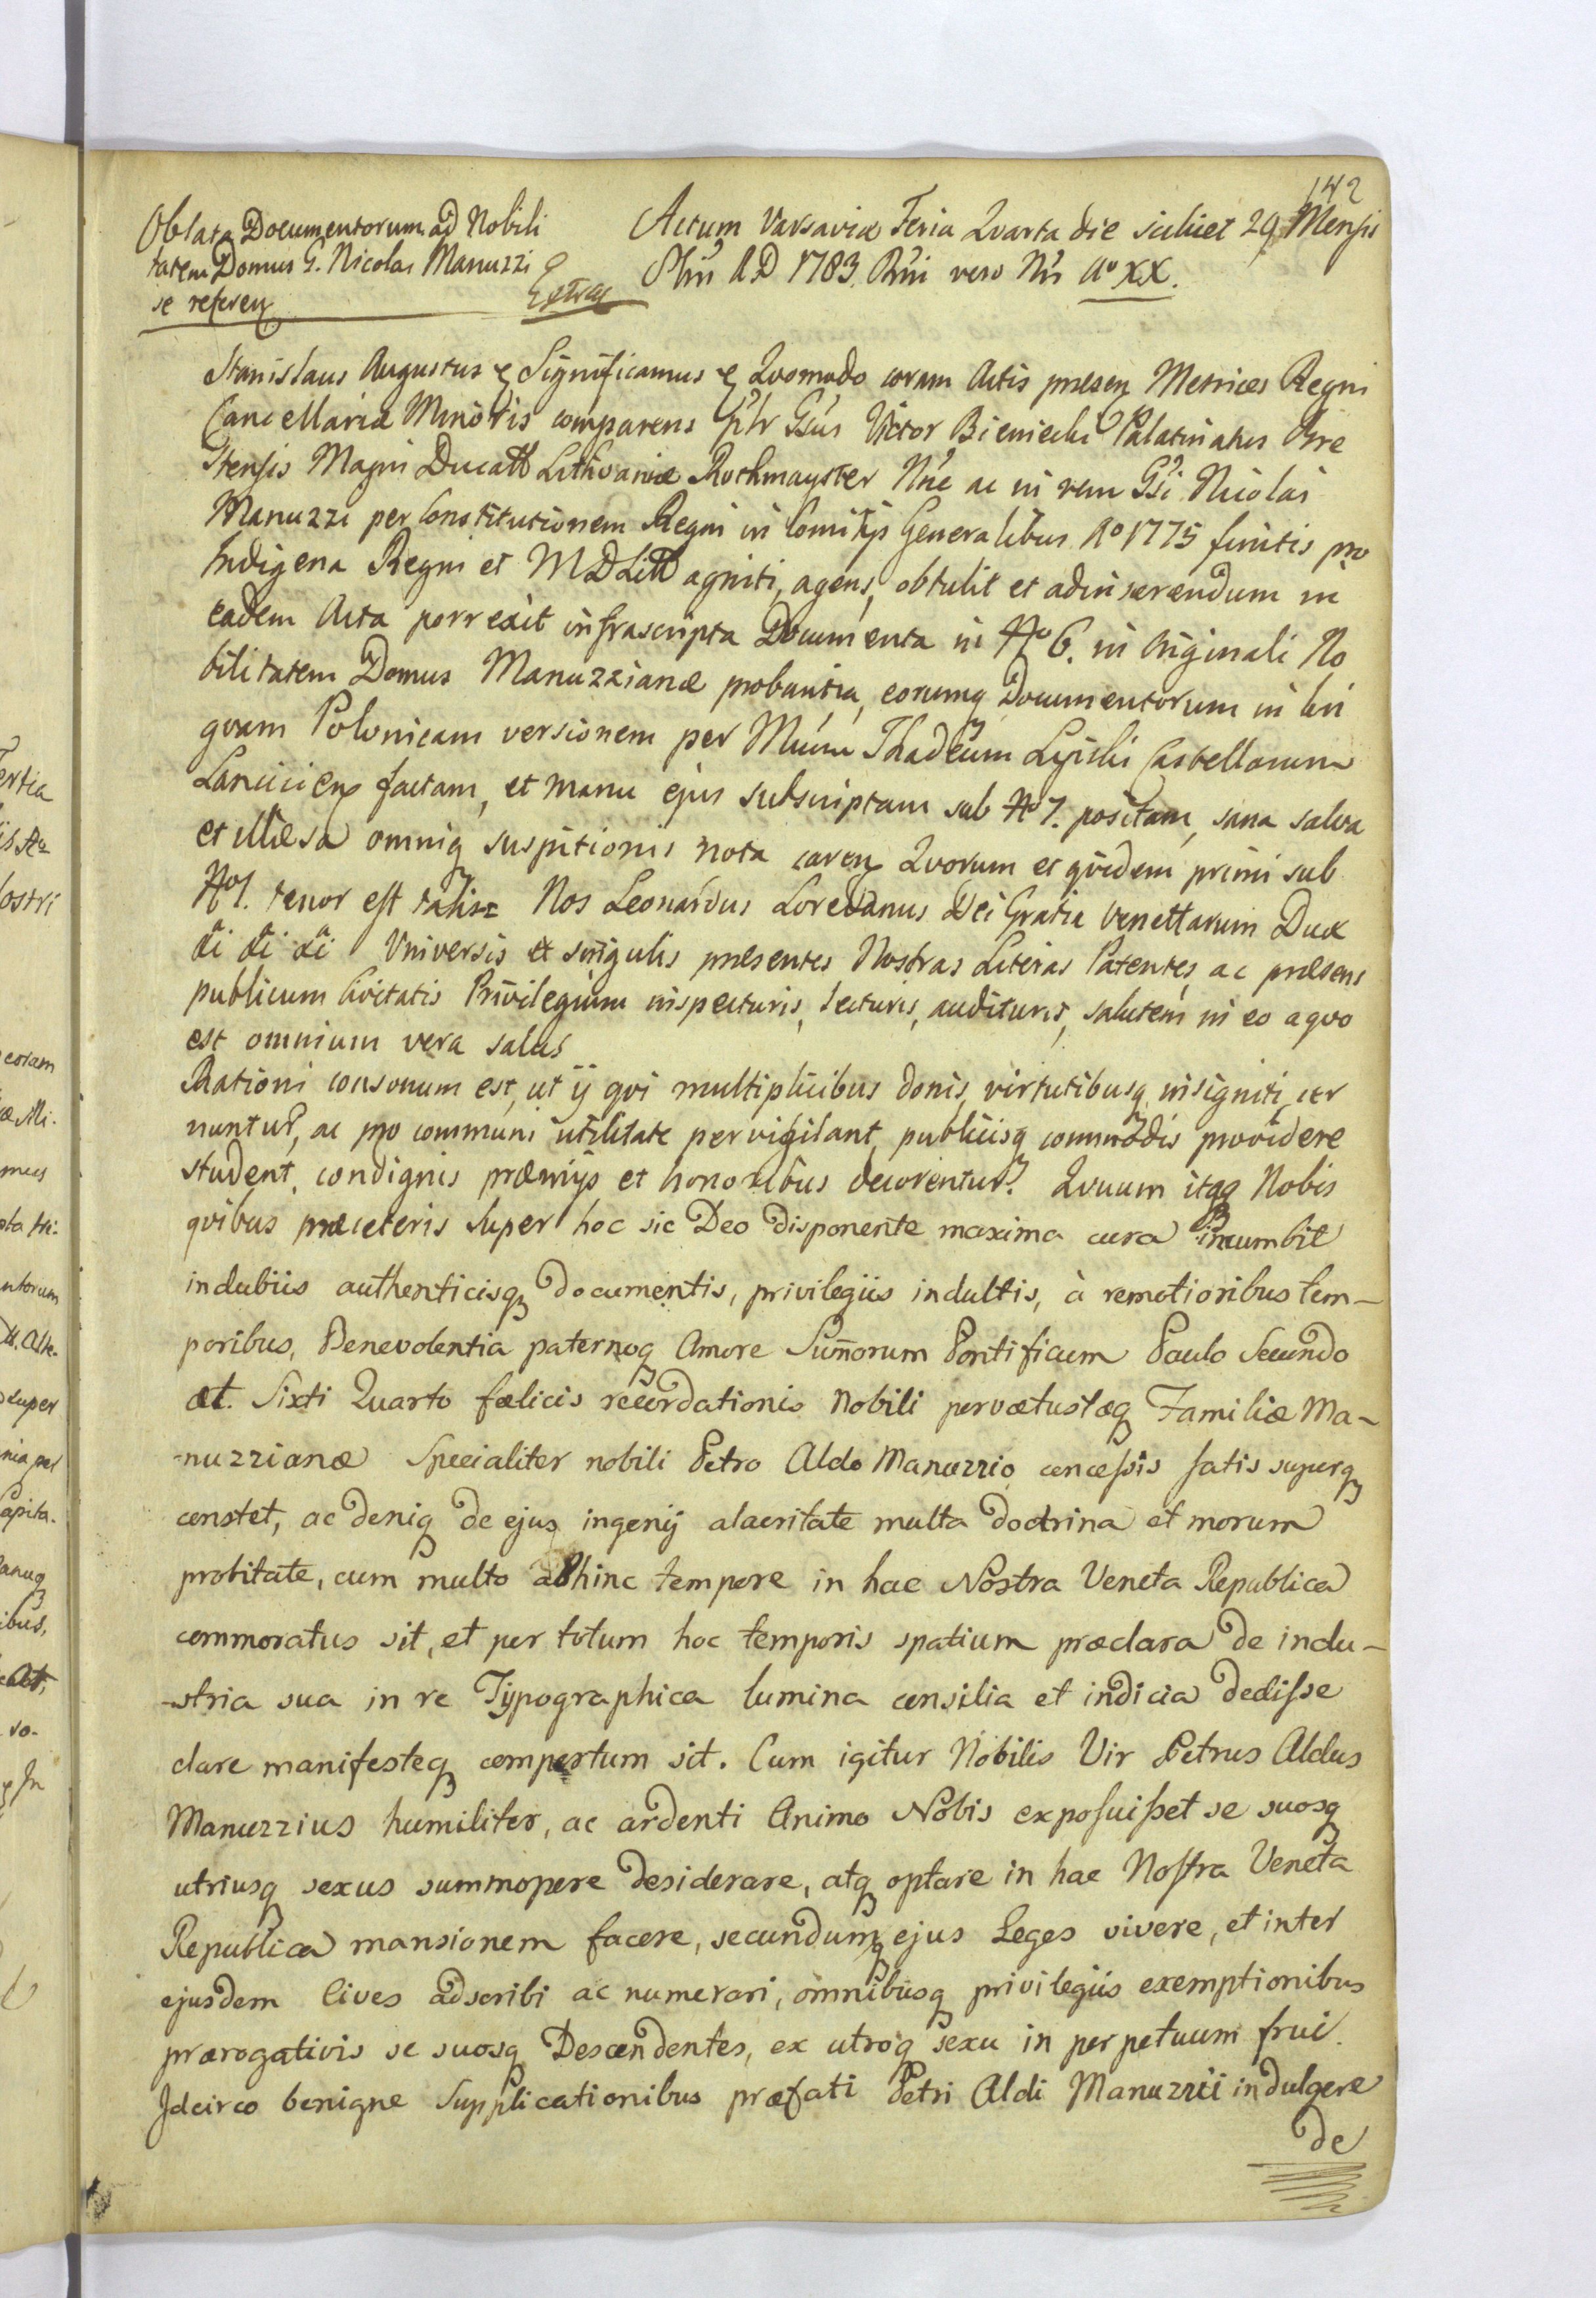 142
Oblata Documentorum ad Nobili
tatem Domus G. Nicolai Manuzzi
se referen
Extrad
Actum Varsaviæ Feria Quarta die scilicet 29 Mensis
8bris AD 1783 Rni vero Nri Aº XX.
Stanislaus Augustus Significamus Quomodo coram Actis præsen Metrices Regni
Cancellariæ Minoris comparens Gsus Victor Bieniecki Palatinatus Bre
stensis Magni Ducatt Lithvaniæ Rothmayster Nne ac in rem Gsi Nicolai
Manuzzi per Constitutionem Regni in Comitijs Generalibus Aº 1775 finitis pro
Indigena Regni et M D Litt agniti, agens, obtulit et adinserendum in
eadem Acta porrexit infrascripta Documenta in Nº 6. in Originali No
bilitatem Domus Manuzzianæ probantia, eorumq Documentorum in lin
gvam Polonicam versionem per Thadeum Lipski Castellanum
Lancicien factam, et manu ejus subscriptam sub Nº 7. positam, sana salva
et illæsa omniq suspitionis nota caren Quorum et qvidem primi sub
Nº 1. tenor est talis= Nos Leonardus Loredanus Dei Gratia Venettarum Dux
&ti &ti &ti Universis et singulis præsentes Nostras Literas Patentes, ac præsens
publicum Civitatis Privilegium inspecturis, lecturis, audituris, salutem in eo aqvo
est omnium vera salus
Rationi consonum est, ut ij qvi multiplicibus donis, virtutibusq insigniti cer
nuntur, ac pro communi utilitate pervigilant, publicisq commodis providere
student, condignis præmijs et honoribus decorentur. Qvuum itaq Nobis
qvibus præceteris super hoc sic Deo disponente maxima cura incumbit
indubiis authenticisq documentis, privilegiis indultis, à remotioribus tem-
poribus, Benevolentia paternoq Amore Sum̄orum Pontificum Paulo Secundo
æt. Sixti Quarto fœlicis recordationis Nobili pervætustæq Familiæ Ma-
-nuzzianæ Specialiter nobili Petro Aldo Manuzzio concessis satis superq
constet, ac deniq de ejus ingenij alacritate multa doctrina et morum
probitate, cum multo abhinc tempore in hac Nostra Veneta Republica
commoratus sit, et per totum hoc temporis spatium præclara de indu-
-stria sua in re Typographica lumina consilia et indicia dedisse
clare manifesteq compertum sit. Cum igitur Nobilis Vir Petrus Aldus
Manuzzius humiliter, ac ardenti Animo Nobis exposuisset se suosq
utriusq sexus summopere desiderare, atq optare in hac Nostra Veneta
Republica mansionem facere, secundumq ejus Leges vivere, et inter
ejusdem Cives adscribi ac numerari, omnibusq privilegiis exemptionibus
prærogativis se suosq Descendentes, ex utroq sexu in perpetuum frui.
Idcirco benigne Supplicationibus præfati Petri Aldi Manuzzii indulgere
de